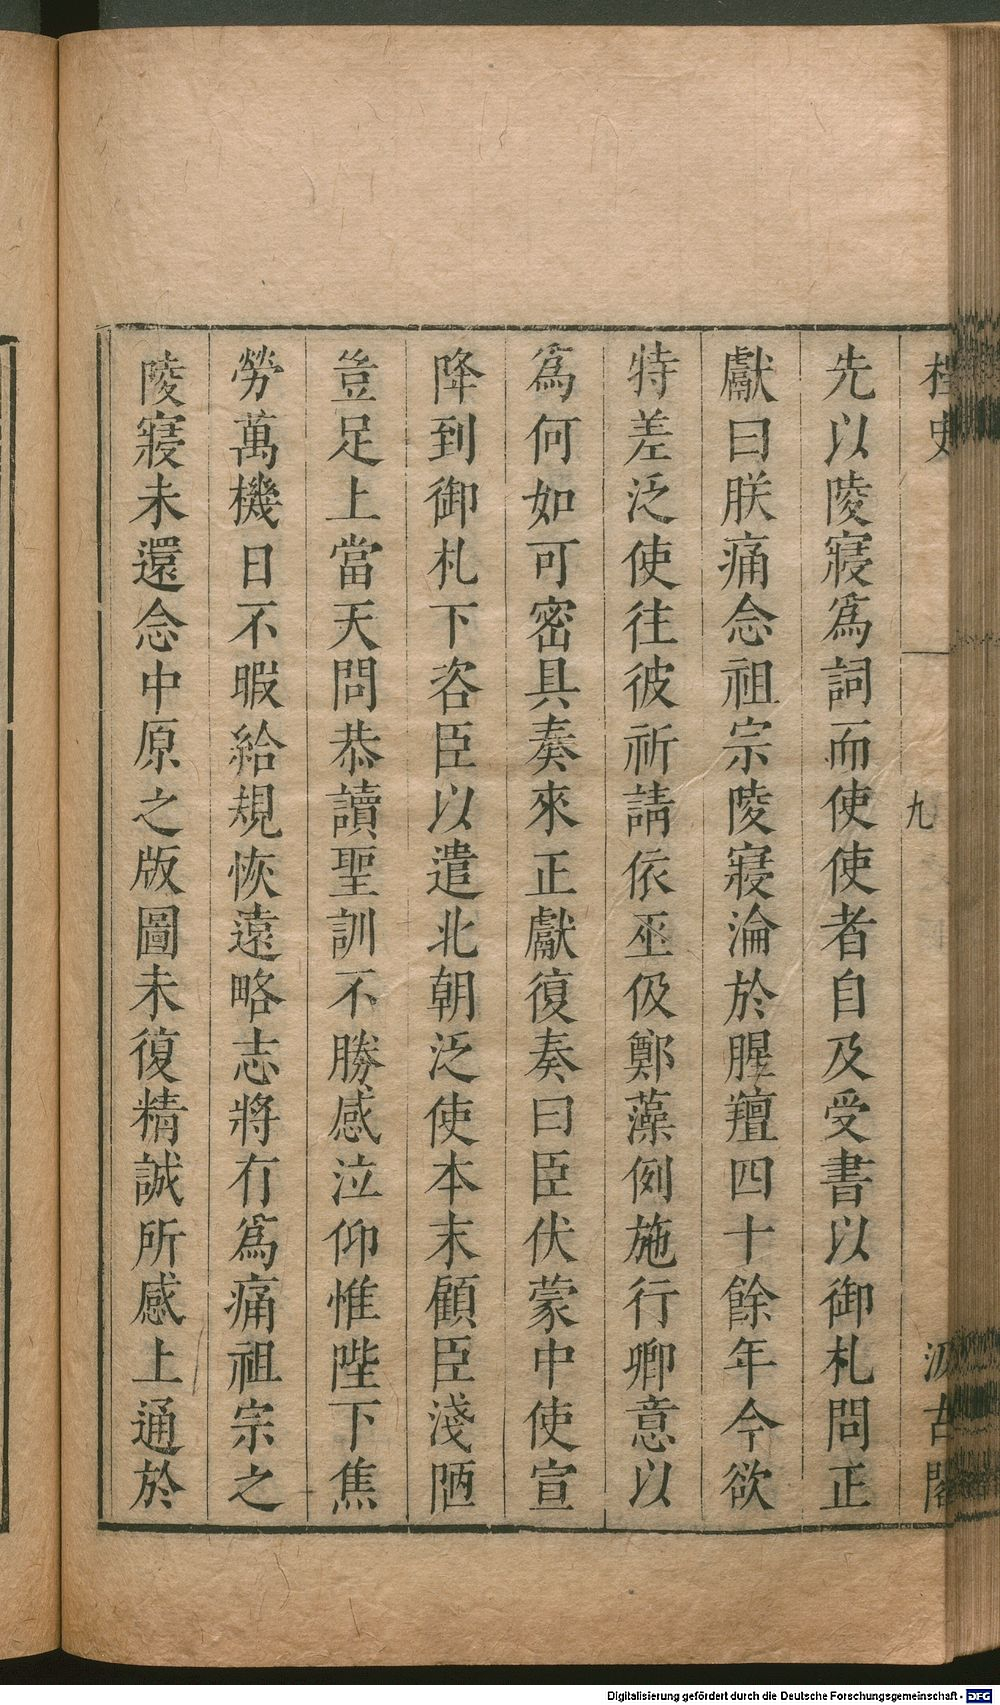 桯史
九
汲古閣
先以陵寢爲詞而使使者自及受書以御札問正
獻曰朕痛念祖宗陵寢淪於腥羶四十餘年今欲
特差泛使往彼祈請依巫伋鄭藻例施行卿意以
爲何如可密具奏來正獻復奏曰臣伏蒙中使宣
降到御札下咨臣以遣北朝泛使本末顧臣淺陋
豈足上當天問恭讀聖訓不勝感泣仰惟陛下焦
勞萬機日不暇給規恢遠略志將有爲痛祖宗之
陵寢未還念中原之版圖未復精誠所感上通於
Digitalisierung gefördert durch die Deutsche Forschungsgemeinschaft - DFG